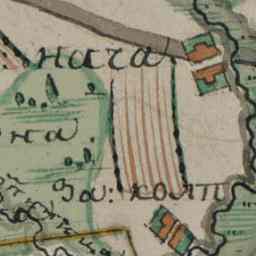 нача
на.
За: колп